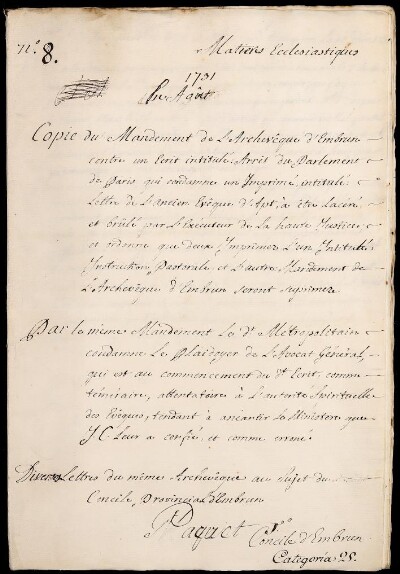 n.º 8.
Matieres Ecclesiastiques
1731
En Août
Copie du Mandement de L'Archevêque d'Embrun
contre un Ecrit intitulé Arrêt du Parlement
de Paris qui condamne un Imprimé intitulé
Lettre de L'ancien Evêque d'Apt, a être laceré
et brûlé par L'Executeur de la haute Justice,
et ordonne que deux Imprimez L'un Intitulé
Instruction Pastorale et L'autre Mandement de
L'Archevêque d'Embrun seront suprimez
Par le meme Mandement Le d.t Metropolitain
condamne Le Plaidoyer de L'Avocat Général,
qui est au commencement du d.t Ecrit, comme
téméraire, attentatoire à L'autorité Spirituelle
des Evêques, tendant a aneantir le Ministere que
J.C. Leur a confié, et comme erroné.
Diverses Lettres du même Archevêque au sujet du
Concile Provincial d'Embrun
Paquet
Concile d'Embrun
Categoria 25.